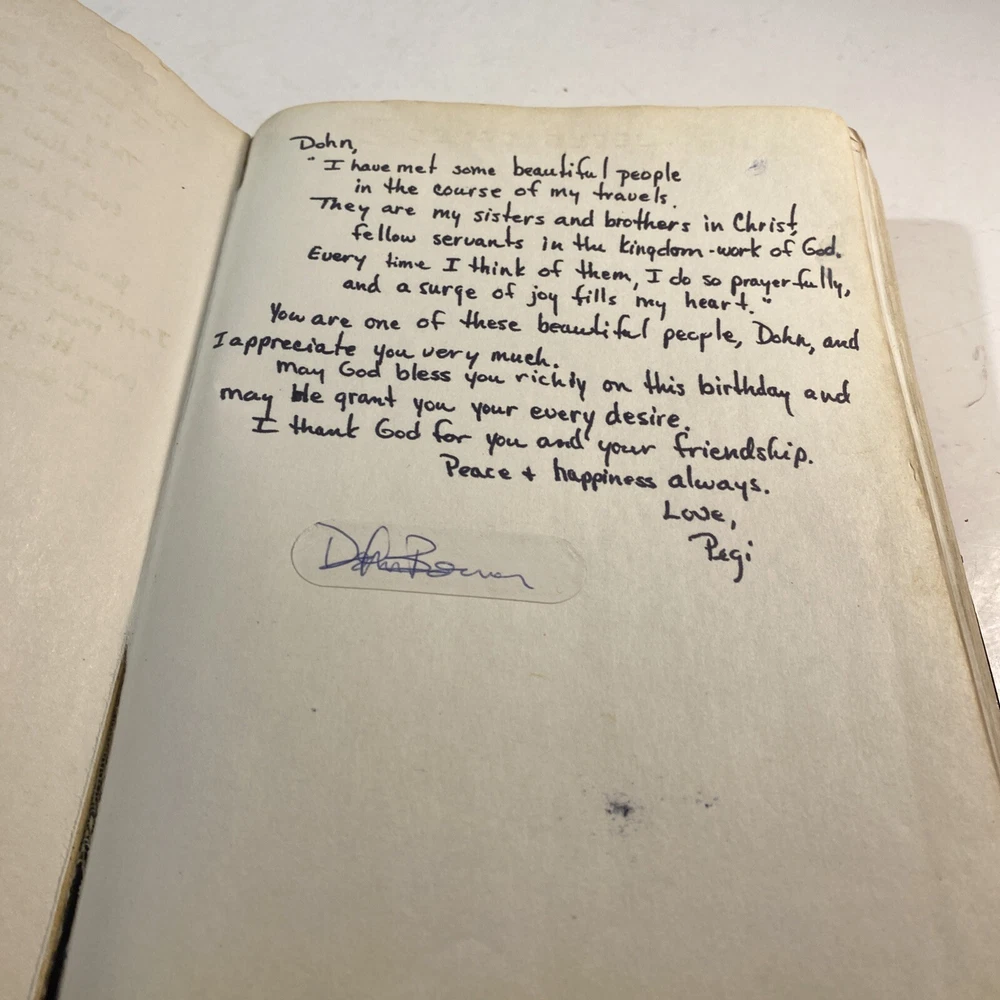 Dohn,
"I have met some beautiful people
in the course of my travels.
They are my sisters and brothers in Christ,
fellow servants in the kingdom-work of God.
Every time I think of them, I do so prayerfully,
and a surge of joy fills my heart."
You are one of these beautiful people, Dohn, and
I appreciate you very much.
May God bless you richly on this birthday and
may He grant you your every desire.
I thank God for you and your friendship.
Peace + happiness always.
Love,
Pegi
Dohn